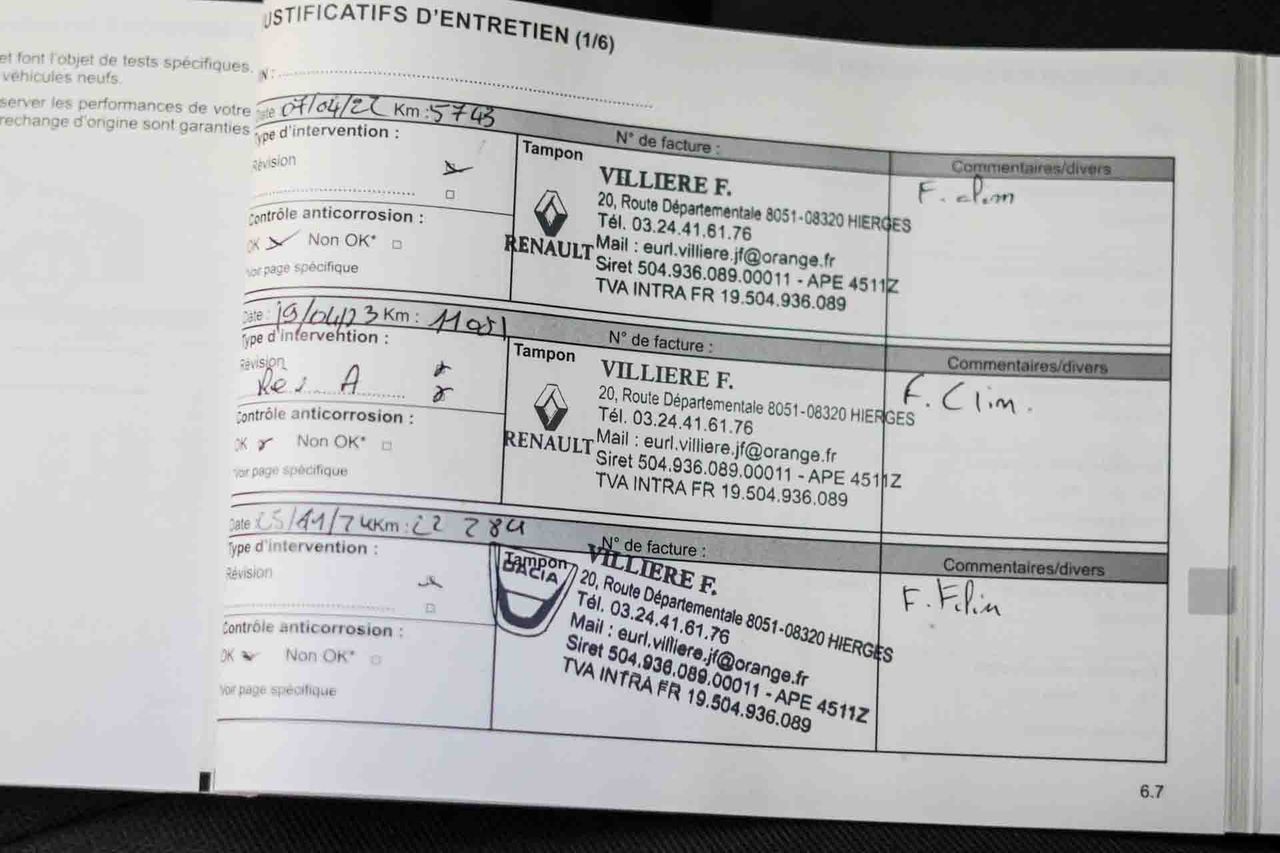 et font l'objet de tests spécifiques.
véhicules neufs.
server les performances de votre
rechange d'origine sont garanties
USTIFICATIFS D'ENTRETIEN (1/6)
Date 07/04/22 Km : 5743
N° de facture :
Commentaires/divers
Type d'intervention :
Révision
Contrôle anticorrosion :
OK Non OK*
Voir page spécifique
Tampon
RENAULT
VILLIERE F.
20, Route Départementale 8051-08320 HIERGES
Tél. 03.24.41.61.76
Mail : eurl.villiere.jf@orange.fr
Siret 504.936.089.00011 - APE 4511Z
TVA INTRA FR 19.504.936.089
F. clim
Date : 19/04/23 Km :
N° de facture :
Commentaires/divers
Type d'intervention :
Révision
Rev A
Contrôle anticorrosion :
OK Non OK*
Voir page spécifique
Tampon
RENAULT
VILLIERE F.
20, Route Départementale 8051-08320 HIERGES
Tél. 03.24.41.61.76
Mail : eurl.villiere.jf@orange.fr
Siret 504.936.089.00011 - APE 4511Z
TVA INTRA FR 19.504.936.089
F. Clim.
Date 25/11/24 Km : 22 784
N° de facture :
Commentaires/divers
Type d'intervention :
Révision
Contrôle anticorrosion :
OK Non OK*
Voir page spécifique
Tampon
DACIA
VILLIERE F.
20, Route Départementale 8051-08320 HIERGES
Tél. 03.24.41.61.76
Mail : eurl.villiere.jf@orange.fr
Siret 504.936.089.00011 - APE 4511Z
TVA INTRA FR 19.504.936.089
F.
6.7